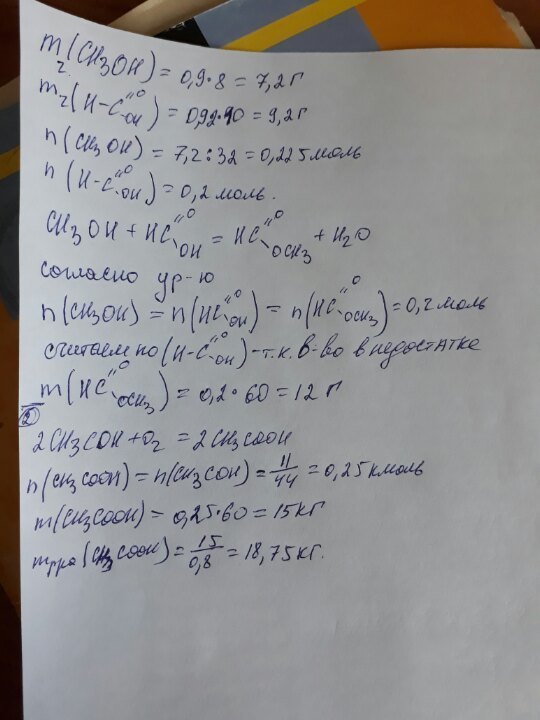 m₂(CH3OH) = 0,9·8 = 7,2 г
m₂(H-C=O OH) = 0,92·10 = 9,2 г
n(CH3OH) = 7,2 : 32 = 0,225 моль
n(H-C=O OH) = 0,2 моль.
CH3OH + HC=O OH = HC=O OCH3 + H2O
согласно ур-ю
n(CH3OH) = n(HC=O OH) = n(HC=O OCH3) = 0,2 моль
считаем по (H-C=O OH) - т.к. в-во в недостатке
m(HC=O OCH3) = 0,2·60 = 12 г
2
2CH3COH + O2 = 2CH3COOH
n(CH3COOH) = n(CH3COH) = 11/44 = 0,25 кмоль
m(CH3COOH) = 0,25·60 = 15 кг
mр-ра(CH3COOH) = 15/0,8 = 18,75 кг.